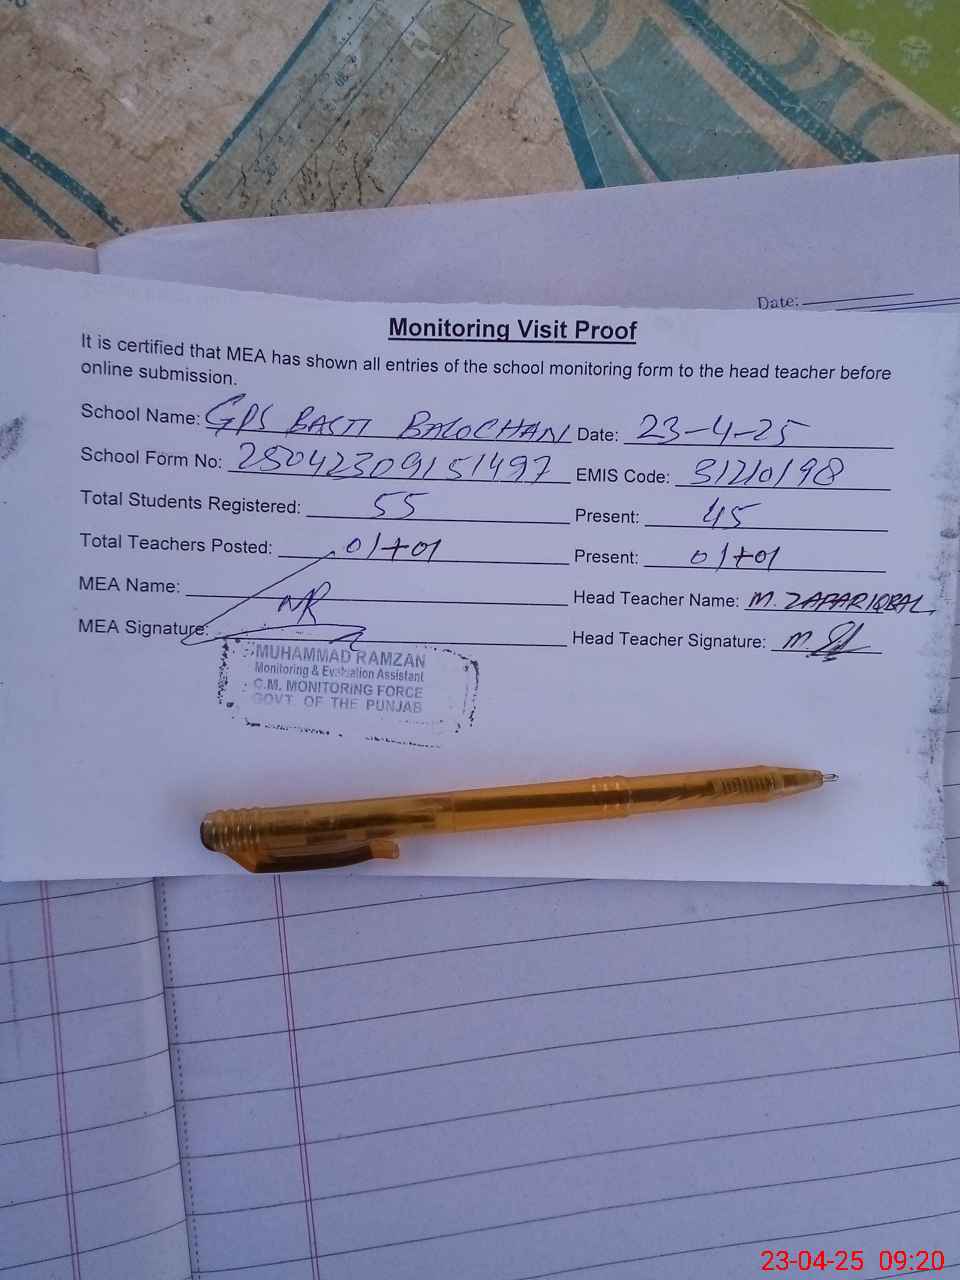 Date:
Monitoring Visit Proof
It is certified that MEA has shown all entries of the school monitoring form to the head teacher before
online submission.
School Name: GPS BASTI BALOCHAN Date: 23-4-25
School Form No: 25042309151497 EMIS Code: 31210198
Total Students Registered: 55 Present: 45
Total Teachers Posted: 01+01 Present: 01+01
MEA Name: Head Teacher Name: M. ZAFAR IQBAL
MEA Signature: Head Teacher Signature:
MUHAMMAD RAMZAN
Monitoring & Evaluation Assistant
C.M. MONITORING FORCE
GOVT. OF THE PUNJAB
23-04-25 09:20